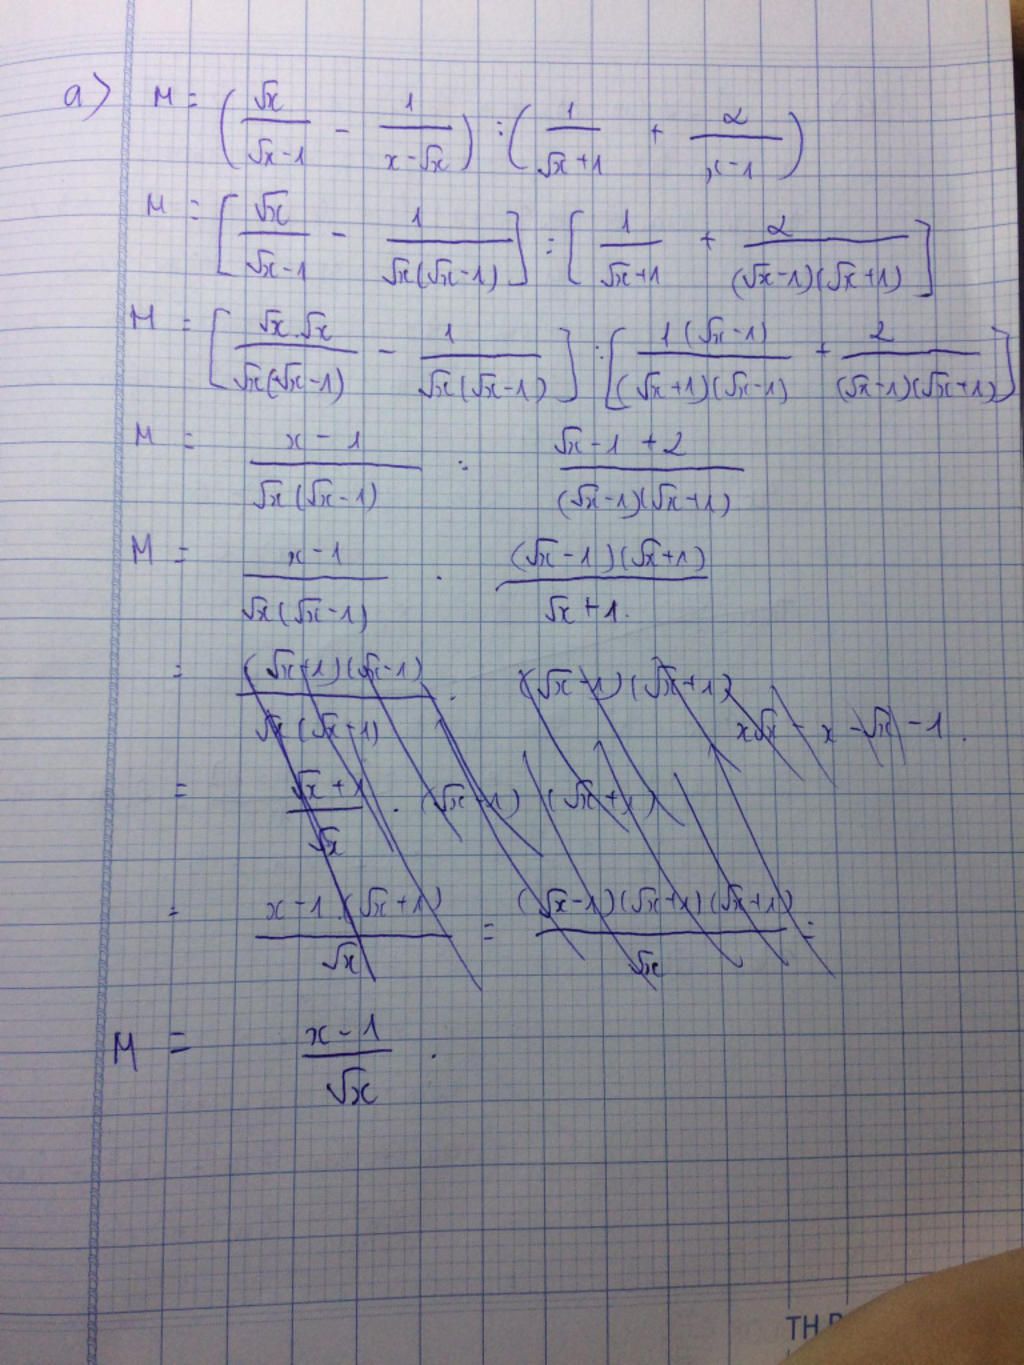 a) M = (√x / (√x - 1) - 1 / (x - √x)) : (1 / (√x + 1) + 2 / (x - 1))
M = [√x / (√x - 1) - 1 / (√x(√x - 1))] : [1 / (√x + 1) + 2 / ((√x - 1)(√x + 1))]
M = [√x.√x / (√x(√x - 1)) - 1 / (√x(√x - 1))] : [1(√x - 1) / ((√x + 1)(√x - 1)) + 2 / ((√x - 1)(√x + 1))]
M = (x - 1) / (√x(√x - 1)) : (√x - 1 + 2) / ((√x - 1)(√x + 1))
M = (x - 1) / (√x(√x - 1)) . (√x - 1)(√x + 1) / (√x + 1).
= (√x + 1)(√x - 1) / (√x(√x - 1)) . (√x - 1)(√x + 1)
x√x - x - √x - 1.
= (√x + 1) / √x . (√x - 1)(√x + 1)
= x - 1.(√x + 1) / √x = (√x - 1)(√x + 1)(√x + 1) / √x =
M = (x - 1) / √x .
TH